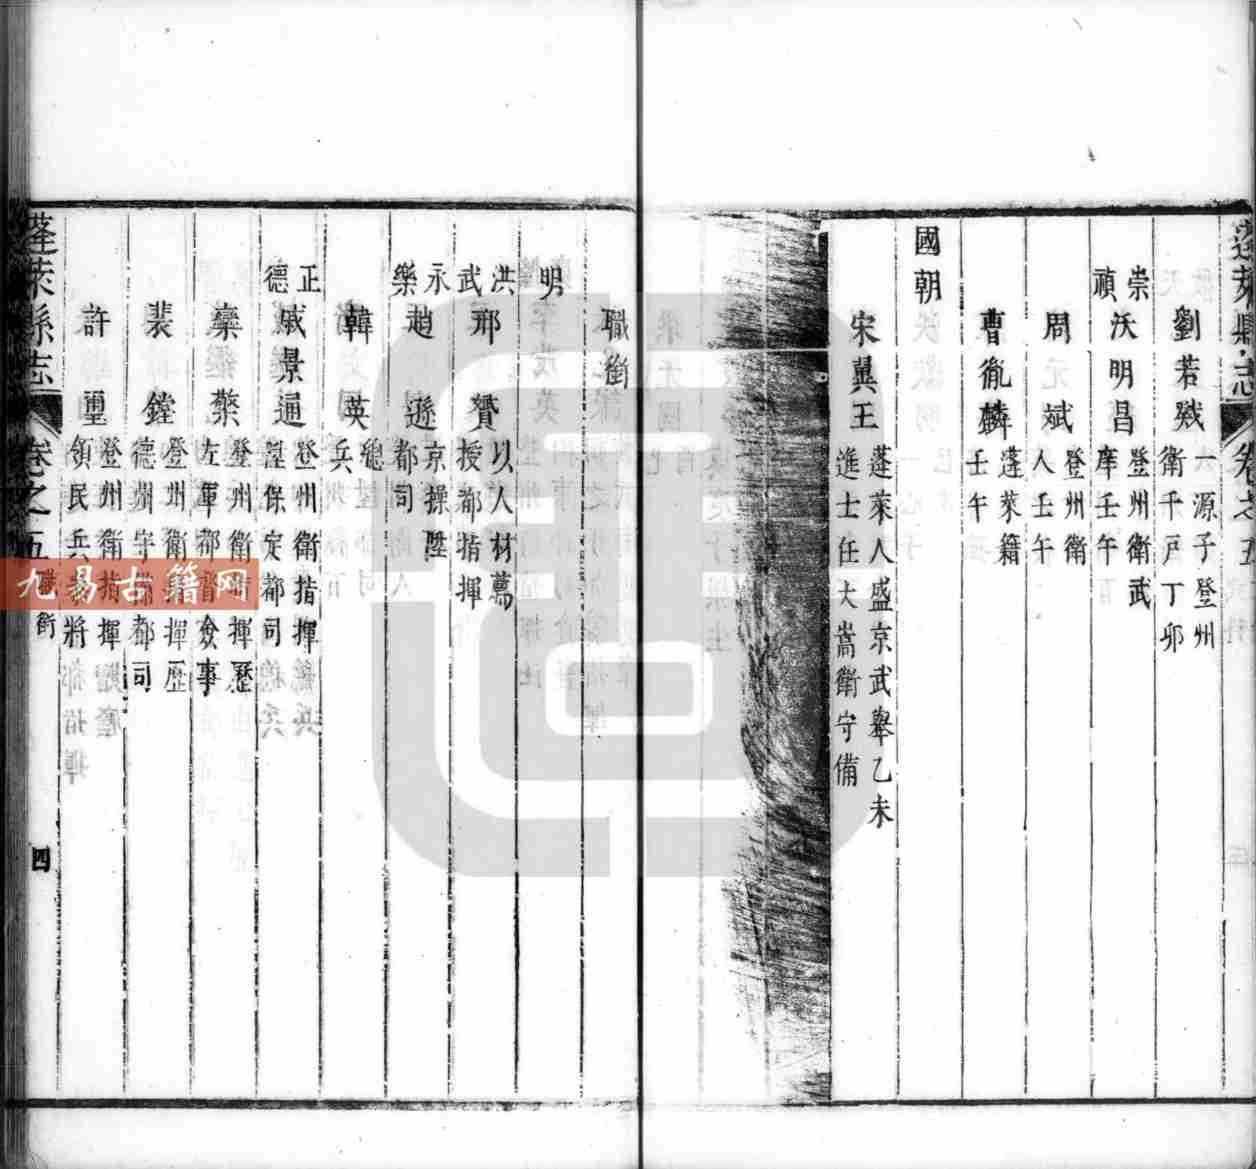 蓬萊縣志 卷之五
劉若㻛 一源子登州
衛千戸丁卯
崇禎 沃明昌 登州衛武
庠壬午
周斌 登州衛
人壬午
曹胤麟 蓬萊籍
壬午
國朝
宋冀王 蓬萊人盛京武舉乙未
進士任大嵩衛守備
職銜
明
洪武 邢贇 以人材薦
授都指揮
永樂 趙遜 京操陞
都司
韓英 總
兵
正德 戚景通 登州衛指揮
陞保定都司
欒檠 登州衛指揮歷
左軍都督僉事
裴鏜 登州衛指揮歷
德州守備都司
許璽 登州衛指揮
領民兵叅將
蓬萊縣志 卷之五 職銜 四
九易古籍网